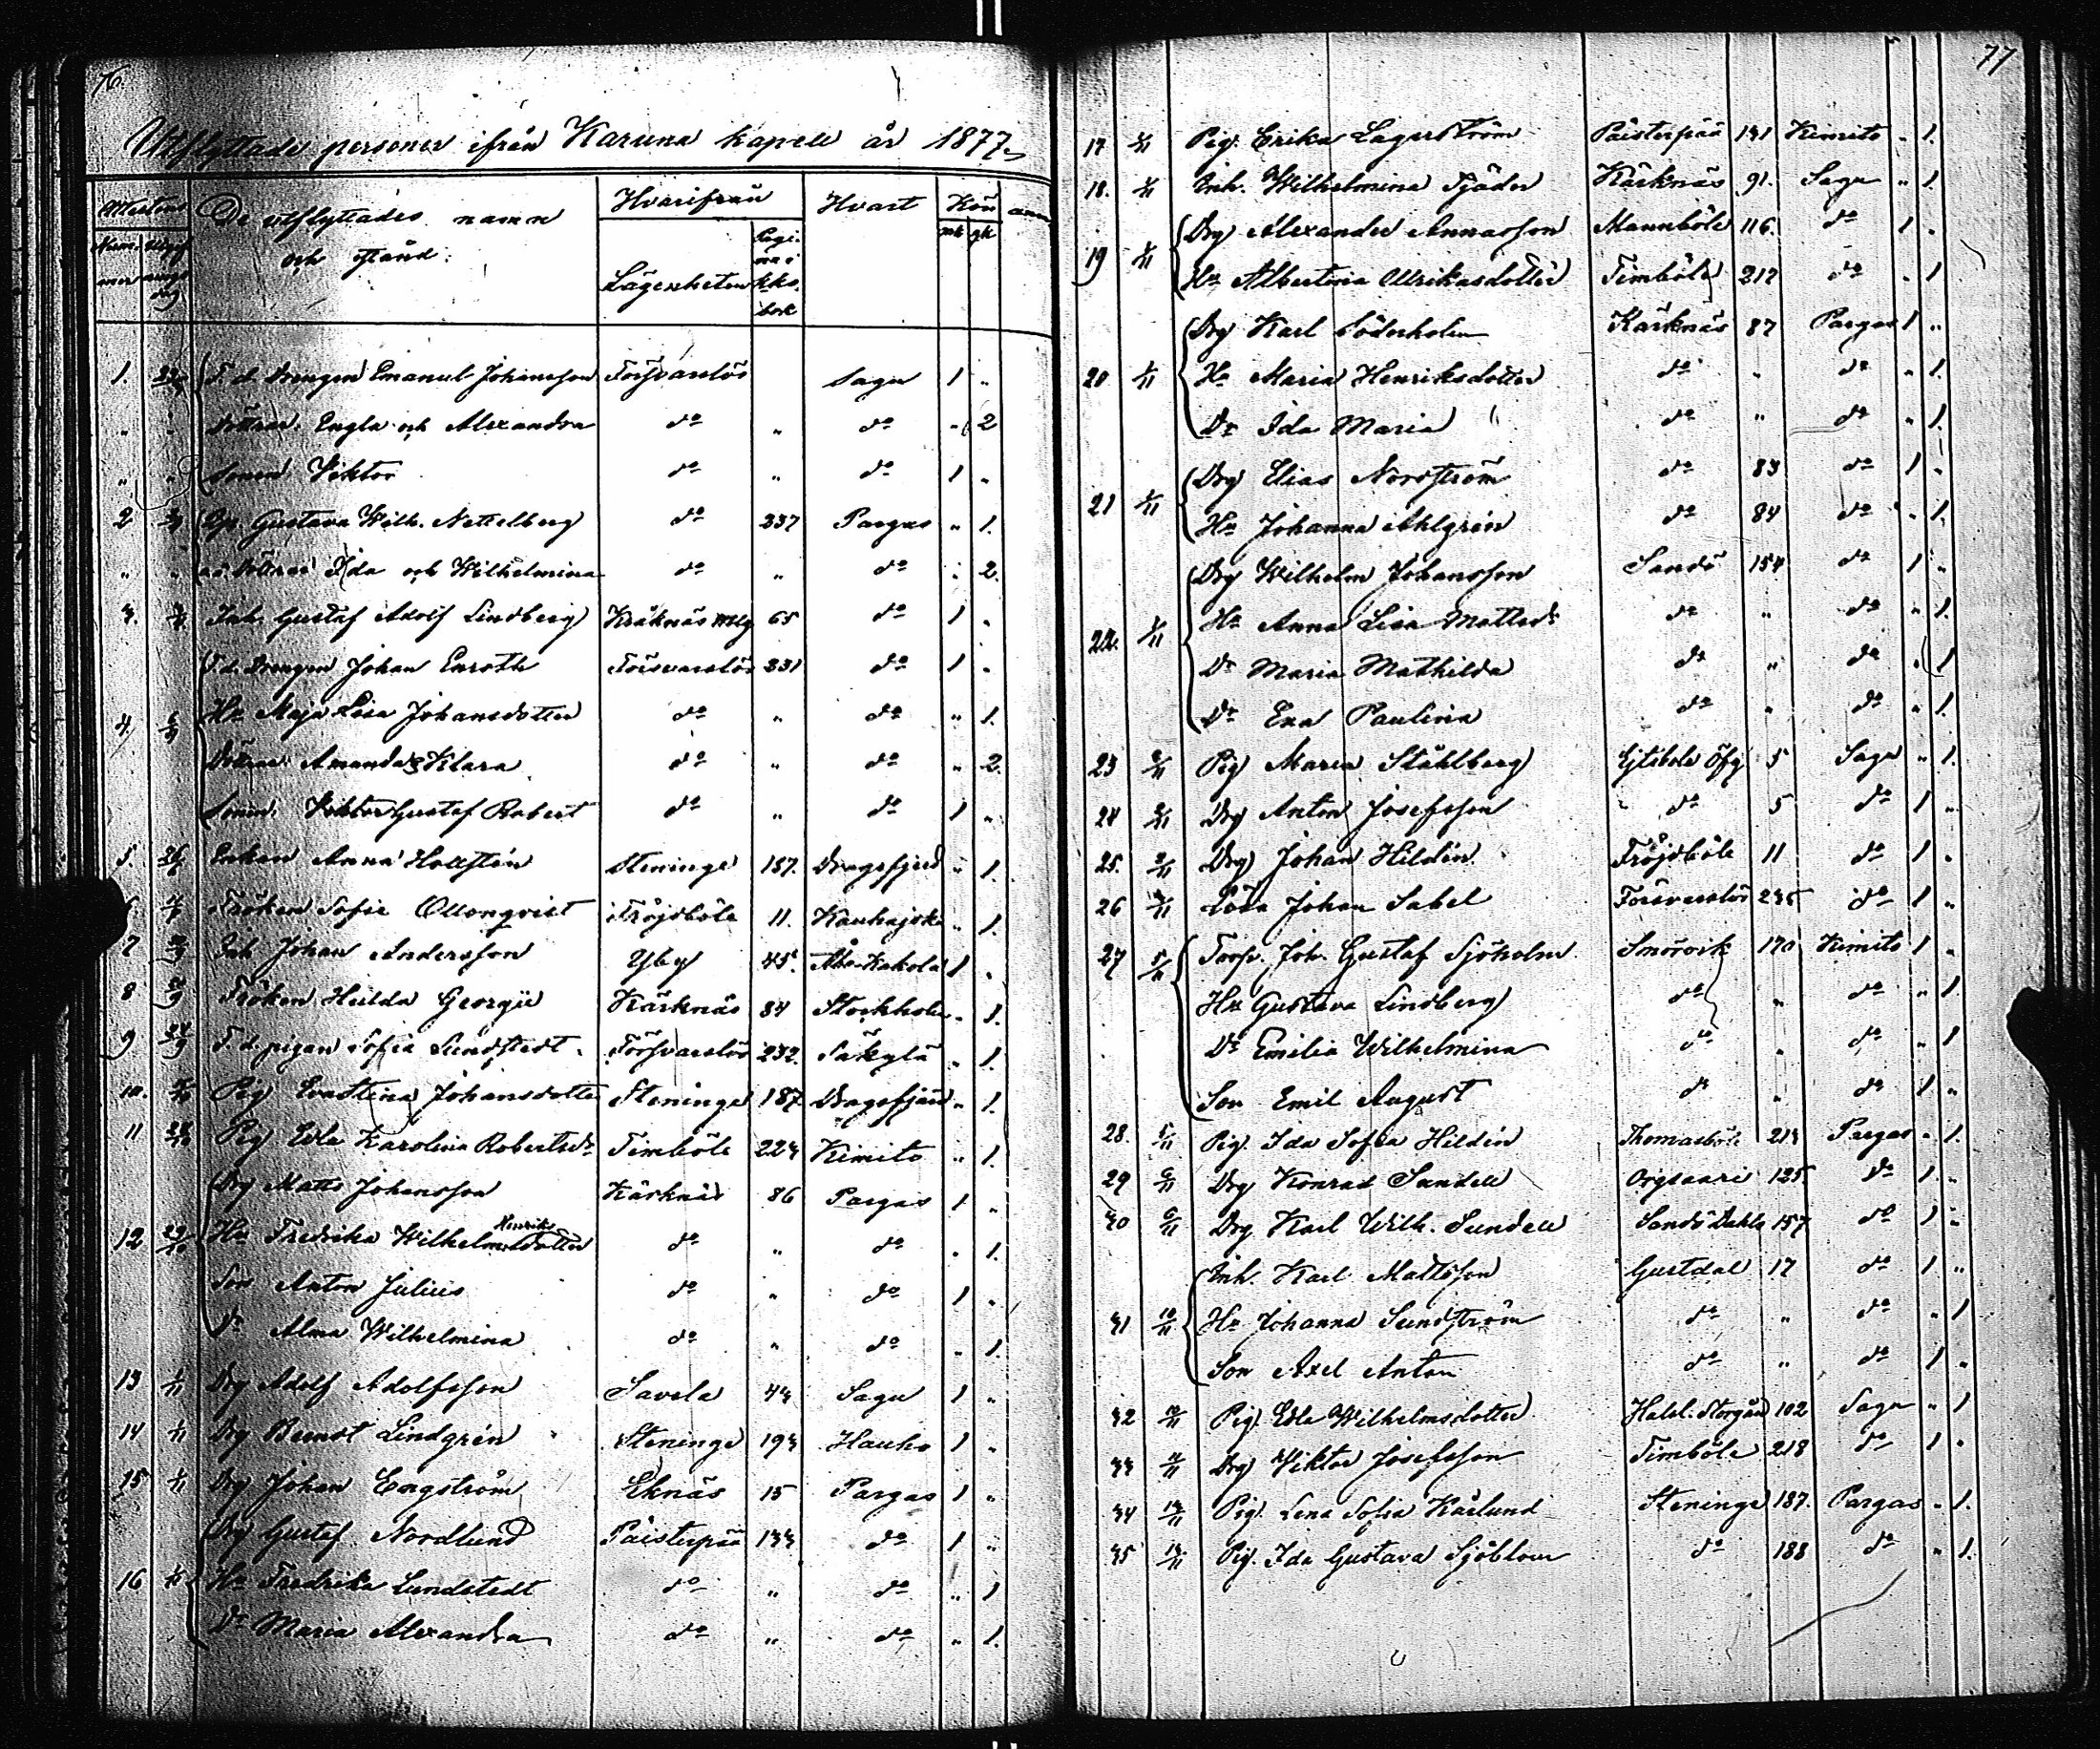 76.
Utflyttade personer ifrån Karuna kapell år 1877.
Attestens De utflyttades namn och stånd. Hvarifrån Hvart Kön anm
Num-mer Utgifnings dag Lägenheten Pagina i kko. bok mk qk
1. F. d. Drengen Emanuel Johansson Försvarslös Sagu 1 "
" " Döttrar. Engla och Alexandra do " do " 2
" " Sonen Viktor do " do 1 "
2 Gustava Wilh. Nettelberg do 237 Pargas " 1.
" " Döttrar Ida och Wilhelmina do " do " 2.
3. Inh. Gustaf Adolf Lindberg Kräknäs 65 do 1 "
F. d. Drengen Johan Enroth Försvarslös 231 do 1 "
4 Hu Maja Lisa Johansdotter do " do " 1.
Döttrar Amanda & Klara do " do " 2.
Sonen. Viktor Gustaf Robert do " do 1 "
5. Enkan Anna Hollstén Steninge 187. Dragsfjerd " 1.
Fröken Sofie Ollonqvist Fröjdböle 11. Kauhajoki " 1.
7 Inh Johan Andersson Yby 45. Åbo Kakola 1 "
8 Fröken Hulda Georgii Kärknäs 84 Stockholm " 1.
9 F. d. pigan Sofia Sundstedt Försvarslös 232. Säkylä " 1.
10. Pig Eva Stina Johansdotter Steninge 187. Dragsfjärd " 1.
11 Pig Edla Karolina Robertsdr Timböle 223 Kimito " 1.
Drg Matts Johansson Kärknäs 86 Pargas 1 "
Henriks
12 29/10 Hu Fredrika Wilhelmsdotter do " do " 1.
Son Anton Julius do " do 1 "
Dr Alma Wilhelmina do " do " 1.
13 1/11 Drg Adolf Adolfsson Savela 43 Sagu 1 "
14 1/11 Drg Berndt Lindgrén Steninge 193 Hauho 1 "
15 1/11 Drg Johan Engström Eknäs 15 Pargas 1 "
Drg Gustaf Nordlund Päisterpää 133 do 1 "
16 1/11 Hu Fredrika Lundstedt do " do " 1
Dr Maria Alexandra do " do " 1.
77
17 1/11 Pig. Erika Lagerström Päisterpää 131 Kimito " 1.
18. 1/11 Inh. Wilhelmina Tjäder Kärknäs 91. Sagu " 1.
Drg Alexander Annasson Mannböle 116. do 1 "
19 1/11 Hu Albertina Ulrikasdotter Timböle 217 do " 1
Drg Karl Söderholm Kärknäs 87 Pargas 1 "
20 1/11 Hu Maria Henriksdotter do " do " 1.
Dr Ida Maria do " do " 1.
Drg Elias Nordström do 83 do 1 "
21 1/11 Hu Johanna Ahlgrén do 84 do " 1.
Drg Wilhelm Johansson Sandö 154 do 1 "
22. 1/11 Hu Anna Lisa Mattsdr do " do " 1.
Dr Maria Mathilda do " do " 1
Dr Eva Paulina do " do " 1.
23 2/11 Pig Maria Ståhlberg 5 Sagu " 1.
24 2/11 Drg Anton Josefsson do 5 do 1 "
25. 2/11 Drg Johan Hildén Fröjdböle 11 do 1 "
26 Johan Sabel Försvarslös 235 do 1 "
27 5/11 Torp. Joh. Gustaf Sjöholm Smörvik 170 Kimito 1 "
Hu Gustava Lindberg do " do " 1.
Dr Emilia Wilhelmina do " do " 1
Son Emil August do " do 1 "
28. 5/11 Pig. Ida Sofia Hildén Thomasböle 213 Pargas " 1.
29 6/11 Drg Konrad Sandell 125 do 1 "
30 6/11 Drg Karl Wilh. Sundell Sandö Dahla 157 do 1 "
Inh. Karl Mattsson Gustdal 17 do 1 "
31 10/11 Hu Johanna Sundström do " do " 1
Son Axel Anton do " do 1 "
32 Pig. Edla Wilhelmsdotter Storgård 102 Sagu " 1
33 Drg Viktor Josefsson Timböle 218 do 1 "
34 Pig. Lena Sofia Karlund Steninge 187. Pargas " 1.
35 Pig. Ida Gustava Sjöblom do 188 do " 1.